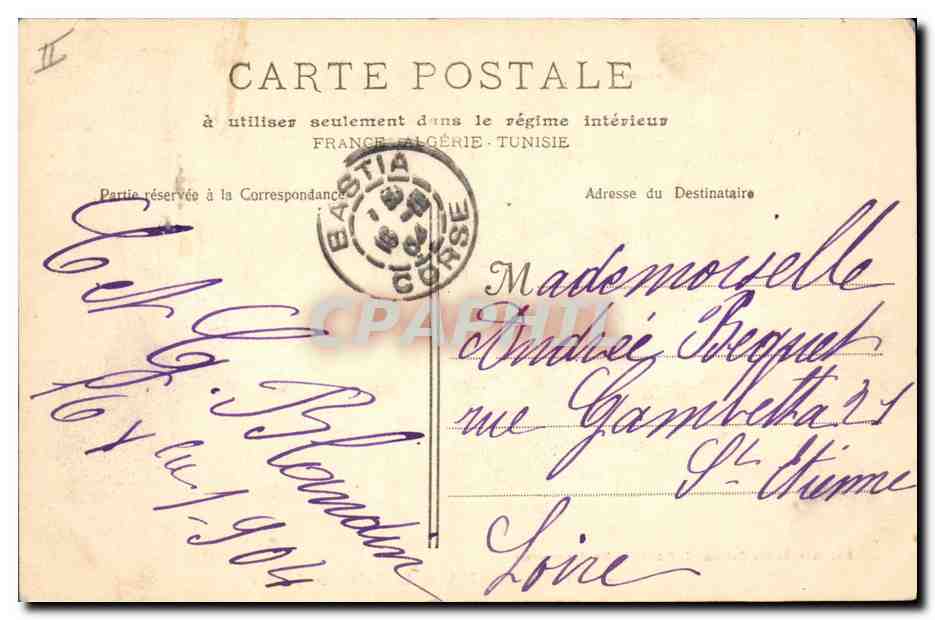 II
CARTE POSTALE
à utiliser seulement dans le régime intérieur
FRANCE - ALGÉRIE - TUNISIE
Partie réservée à la Correspondance
Adresse du Destinataire
BASTIA
CORSE
CPAPHIL
Mademoiselle
Andrée Bequet
rue Gambetta 21
St Etienne
Loire
Blondin
1904